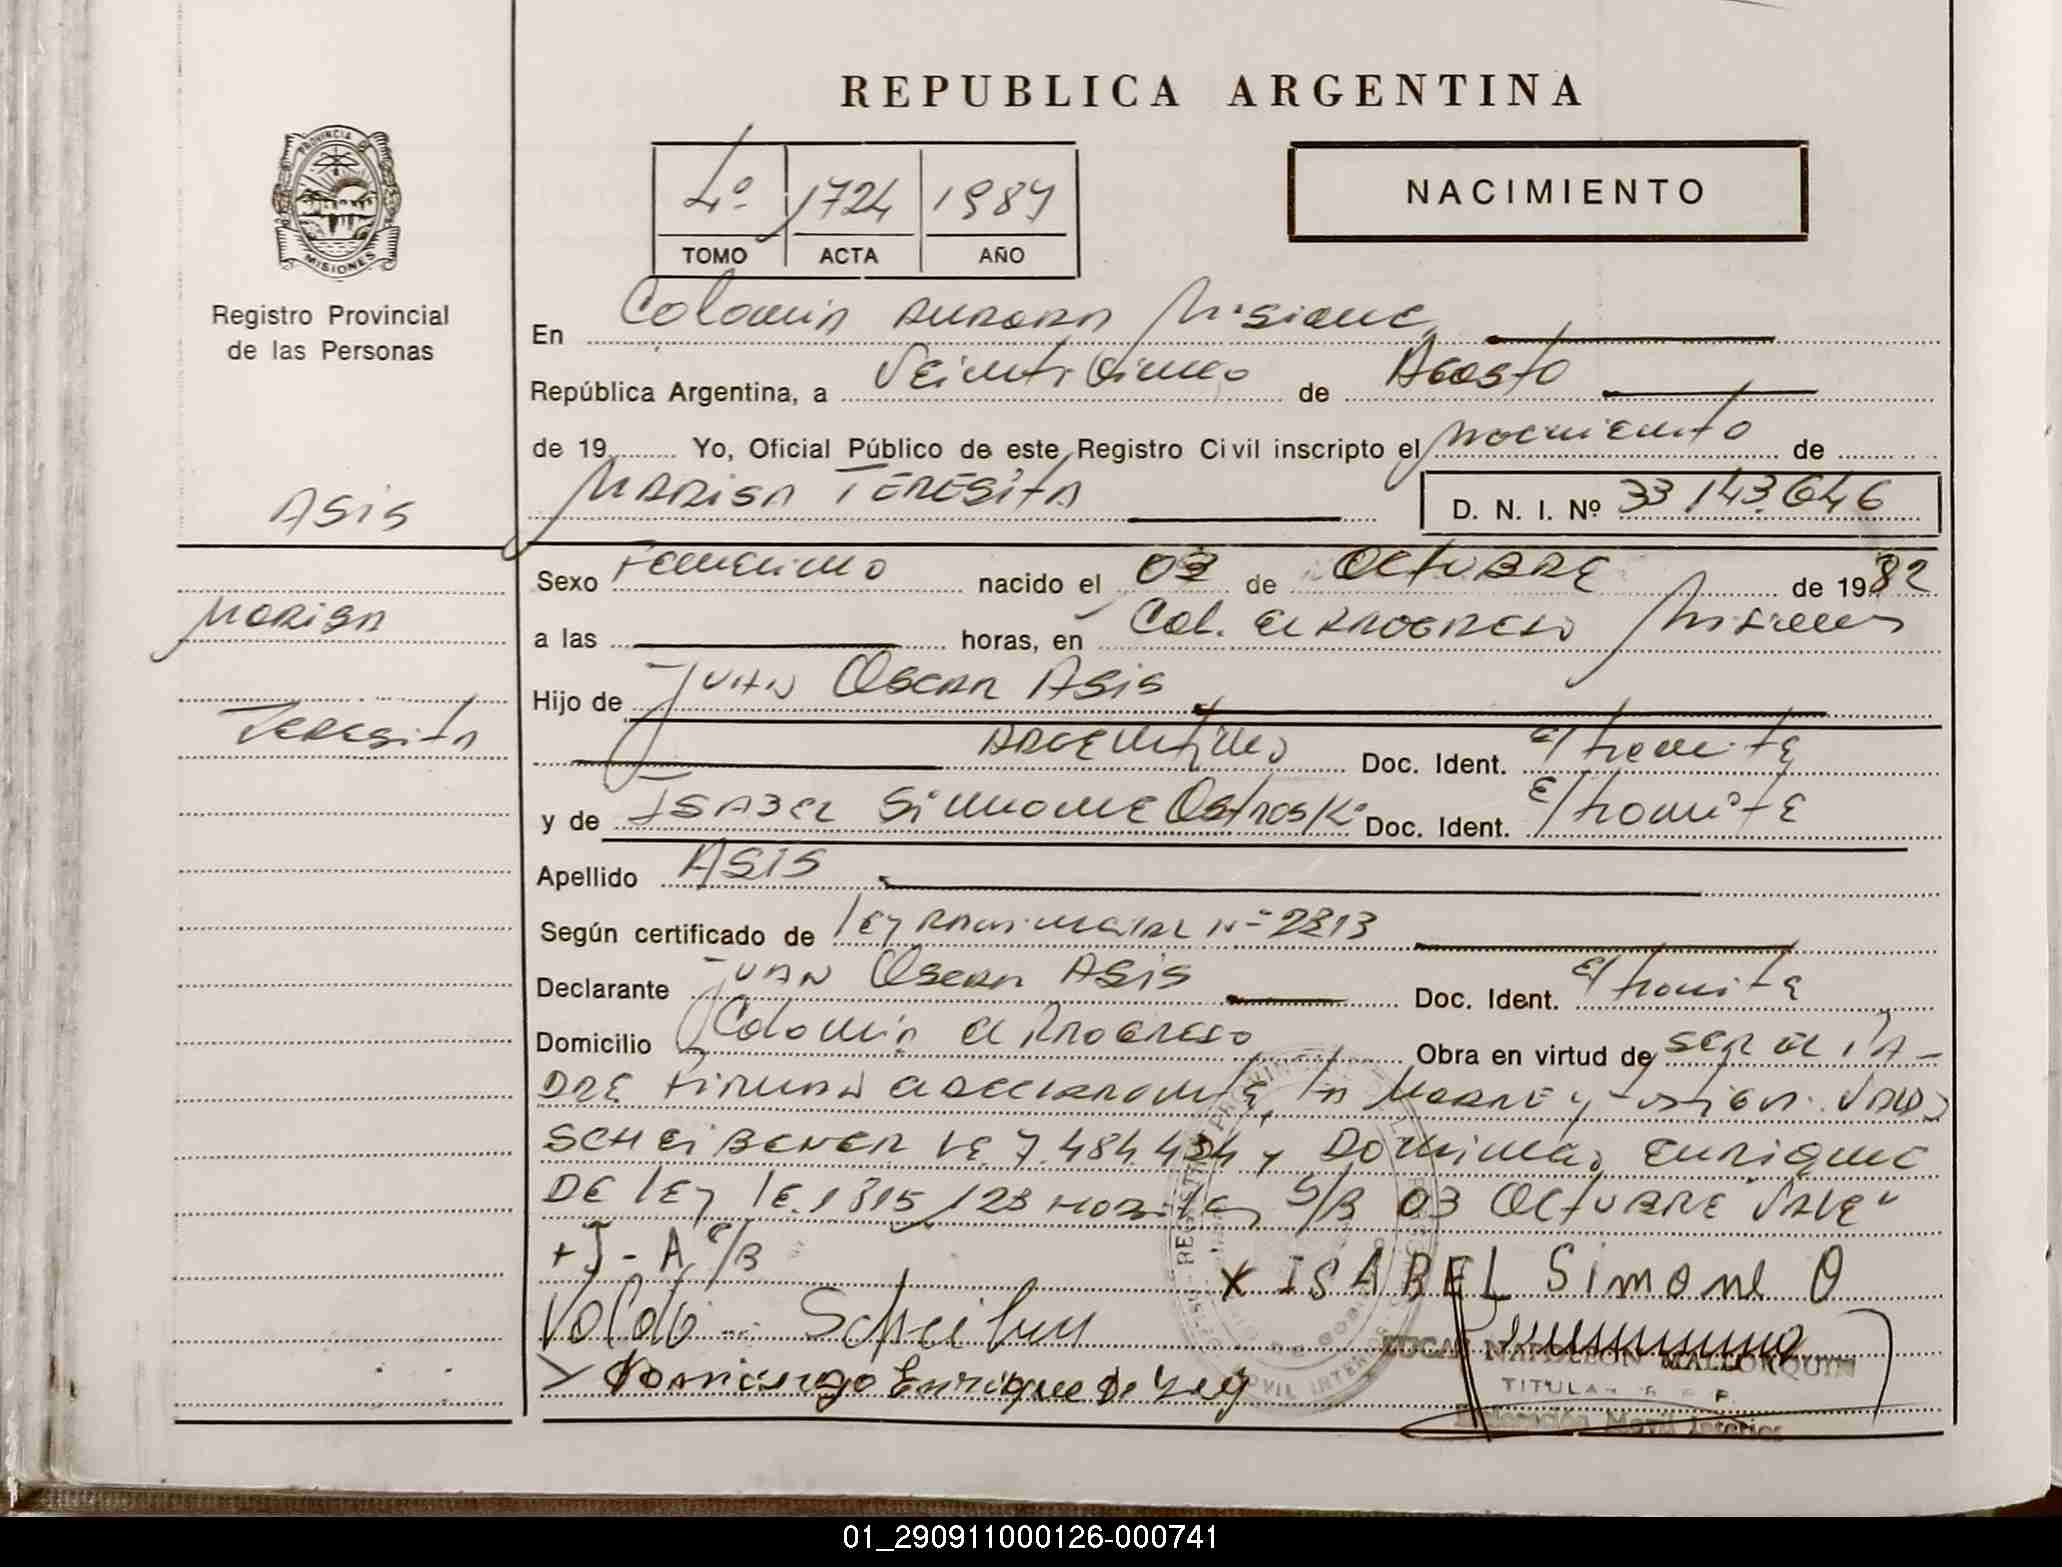 REPUBLICA ARGENTINA
PROVINCIA DE
MISIONES
Registro Provincial
de las Personas
4º 1724 1987
TOMO ACTA AÑO
NACIMIENTO
En Colonia Aurora Misiones
República Argentina, a Veinticinco de Agosto
de 19 Yo, Oficial Público de este Registro Civil inscripto el nacimiento de
ASIS
MARISA TERESITA
D. N. I. Nº 33.143.646
Sexo Femenino nacido el 03 de OCTUBRE de 1982
Marisa
a las horas, en Col. El Progreso Misiones
Hijo de Juan Oscar Asis
Teresita
Argentino Doc. Ident. E/tramite
y de Isabel Simone Ostroski Doc. Ident. E/tramite
Apellido ASIS
Según certificado de ley Provincial Nº 2813
Declarante Juan Oscar Asis Doc. Ident. E/tramite
Domicilio Colonia El Progreso Obra en virtud de ser el Pa-
dre Firman el declarante, la Madre y Testigos Valdo
SCHEIBENER LE. 7.484.434 y Domingo Enrique
DE ley LE. 1815123 S/B 03 OCTUBRE VALE
+J - A C/B
X ISABEL Simone O
Valdo Scheibner
Domingo Enrique De Ley
LUCAS NAPOLEON MALLORQUIN
TITULAR R P P
Delegación Movil Interior
01_290911000126-000741